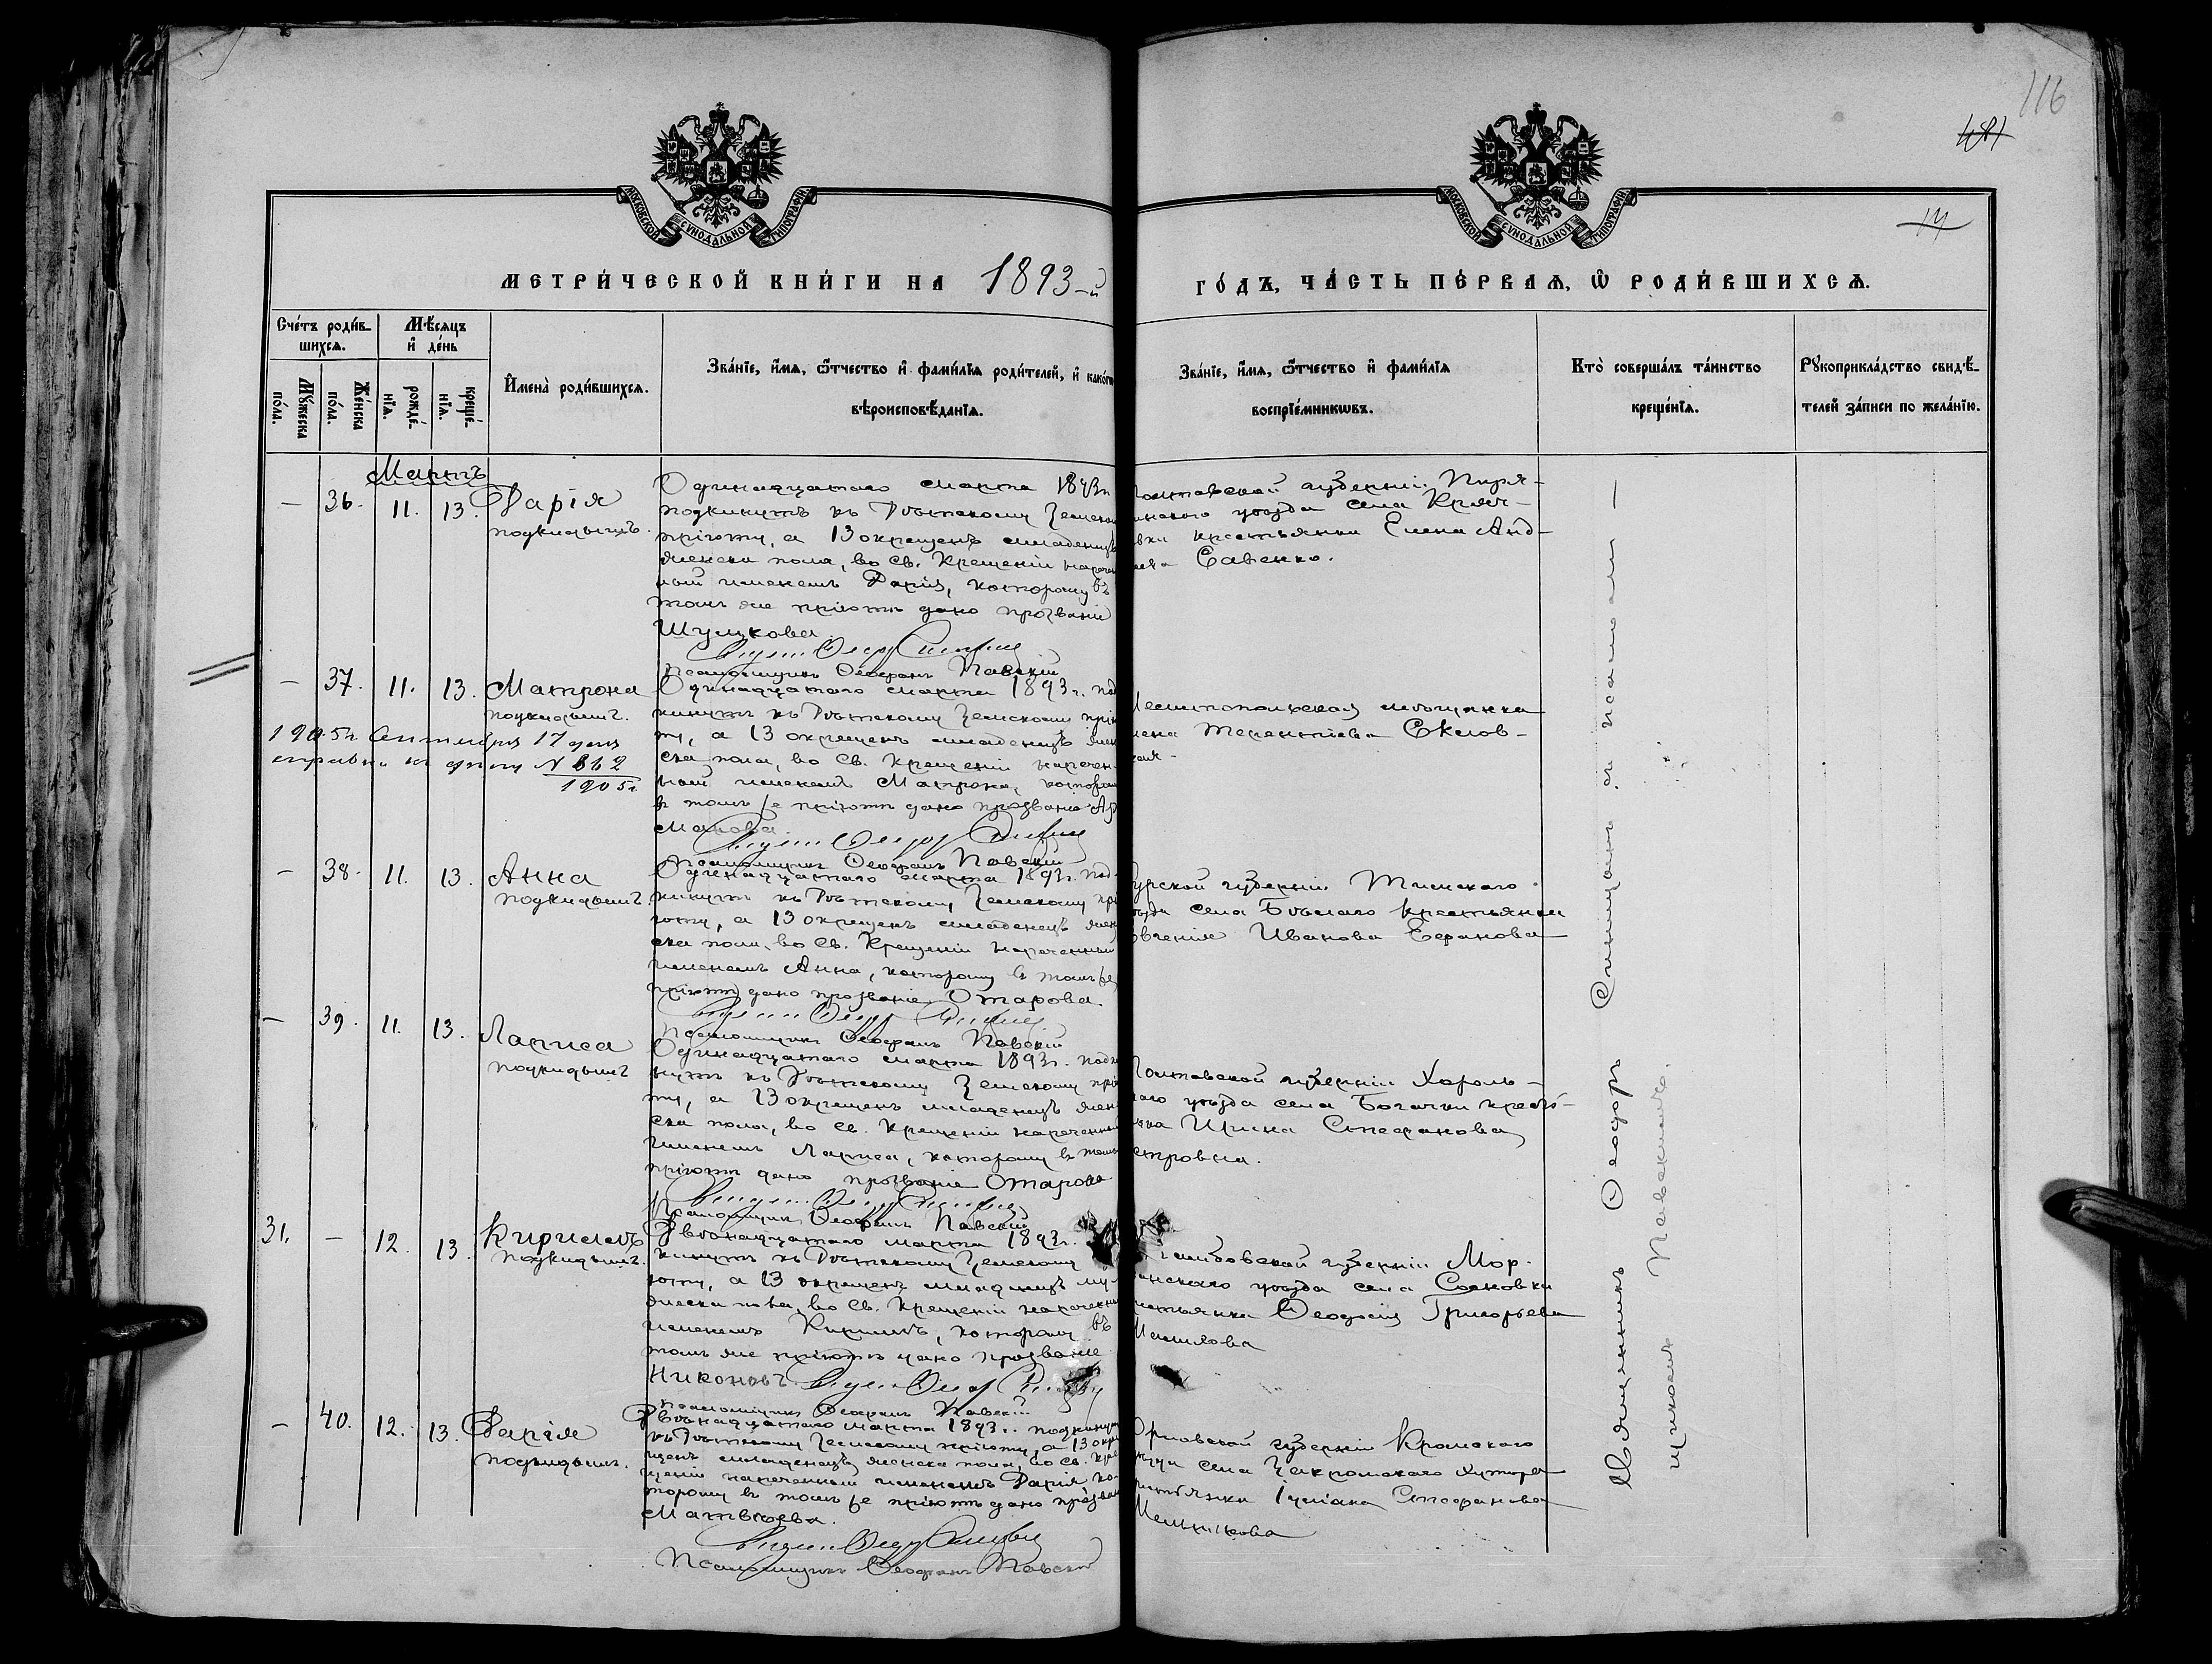 116
14
МОСКОВСКОЙ СѴНОДАЛЬНОЙ ТИПОГРАФІИ
МОСКОВСКОЙ СѴНОДАЛЬНОЙ ТИПОГРАФІИ
МЕТРИ́ЧЕСКОЙ КНИ́ГИ НА 1893-й
ГО́ДЪ, ЧА́СТЬ ПЕ́РВАѦ, Ѿ РОДИ́ВШИХСѦ.
Сче́тъ роди́в-
шихсѧ.
Мꙋ́жеска
по́ла.
Же́нска
по́ла.
Мѣ́сѧцъ
и҆ де́нь
рожде́-
нїѧ.
креще́-
нїѧ.
И҆мена̀ роди́вшихсѧ.
Зва́нїе, и҆́мѧ, ѻ҆́тчество и҆ фами́лїѧ роди́телей, и҆ како́гѡ
вѣроисповѣ́данїѧ.
Зва́нїе, и҆́мѧ, ѻ҆́тчество и҆ фами́лїѧ
воспрїе́мникѡвъ.
Кто̀ соверша́лъ та́инство
креще́нїѧ.
Рꙋкоприкла́дство свидѣ́-
телей за́писи по жела́нїю.
Мартъ
— 36. 11. 13. Дарія
подкидышъ.
Одинадцатаго марта 1893 г.
подкинутъ къ Дѣтскому Земском
пріюту, а 13 окрещенъ младенецъ
женска пола, во Св. Крещеніи наречен
ный именемъ Дарія, которому въ
томъ же пріютѣ дано прозваніе
Шулукова.
Псаломщикъ Ѳеофанъ Павскій
Полтавской губерніи Пиря-
тинскаго уѣзда села Кряч-
овки крестьянка Елена Анд-
еева Савенко.
— 37. 11. 13. Матрона
подкидышъ.
1905 г. Сентября 17 дня
справка къ дѣлу № 862
1905 г.
Одинадцатаго марта 1893 г. под
кинутъ къ Дѣтскому Земскому прію
ту, а 13 окрещенъ младенецъ жен
ска пола, во Св. Крещеніи наречен-
ный именемъ Матрона, котором
въ томъ же пріютѣ дано прозваніе
Псаломщикъ Ѳеофанъ Павскій
мѣщанка
Терентіева
— 38. 11. 13. Анна
подкидышъ.
Одинадцатаго марта 1893 г. под-
кинутъ къ Дѣтскому Земскому прі
юту, а 13 окрещенъ младенецъ жен
ска пола, во Св. Крещеніи нареченный
именемъ Анна, которому въ томъ же
пріютѣ дано прозваніе Отарова.
Псаломщикъ Ѳеофанъ Павскій
Курской губерніи Тимскаго
уѣзда села Бѣлаго крестьянка
Евгенія Иванова
— 39. 11. 13. Лариса
подкидышъ
Одинадцатаго марта 1893 г. подки
нутъ къ Дѣтскому Земскому прію
ту, а 13 окрещенъ младенецъ жен
ска пола, во Св. Крещеніи нареченный
именемъ Лариса, которому въ томъ
пріютѣ дано прозваніе Отарова
Псаломщикъ Ѳеофанъ Павскій
Полтавской губерніи Хороль-
скаго уѣзда села Богачки кресть-
янка Ирина Стефанова
етровна.
31. — 12. 13. Кириллъ
подкидышъ.
Двѣнадцатаго марта 1893 г.
кинутъ къ Дѣтскому Земскому
юту, а 13 окрещенъ младенецъ му-
жеска пола, во Св. Крещеніи нареченный
именемъ Кириллъ, которому въ
томъ же пріютѣ дано прозваніе
Никоновъ
Псаломщикъ Ѳеофанъ Павскій
Тамбовской губерніи Мор-
шанскаго уѣзда села Сосновки
крестьянка Ѳеодосія Григорьева
— 40. 12. 13. Дарія
подкидышъ.
Двѣнадцатаго марта 1893 г. подкинут
къ Дѣтскому Земскому пріюту, а 13 окре
щенъ младенецъ женска пола, во Св. Кре
щеніи нареченный именемъ Дарія, ко-
торому въ томъ же пріютѣ дано прозван
Матвѣева.
Псаломщикъ Ѳеофанъ Павскій
Орловской губерніи Кромскаго
уѣзда села Закромскаго хутора
крестьянка Іуліана Стефанова
Мельникова
Священникъ Ѳеодоръ Синицынъ съ псалом-
щикомъ Павскимъ.